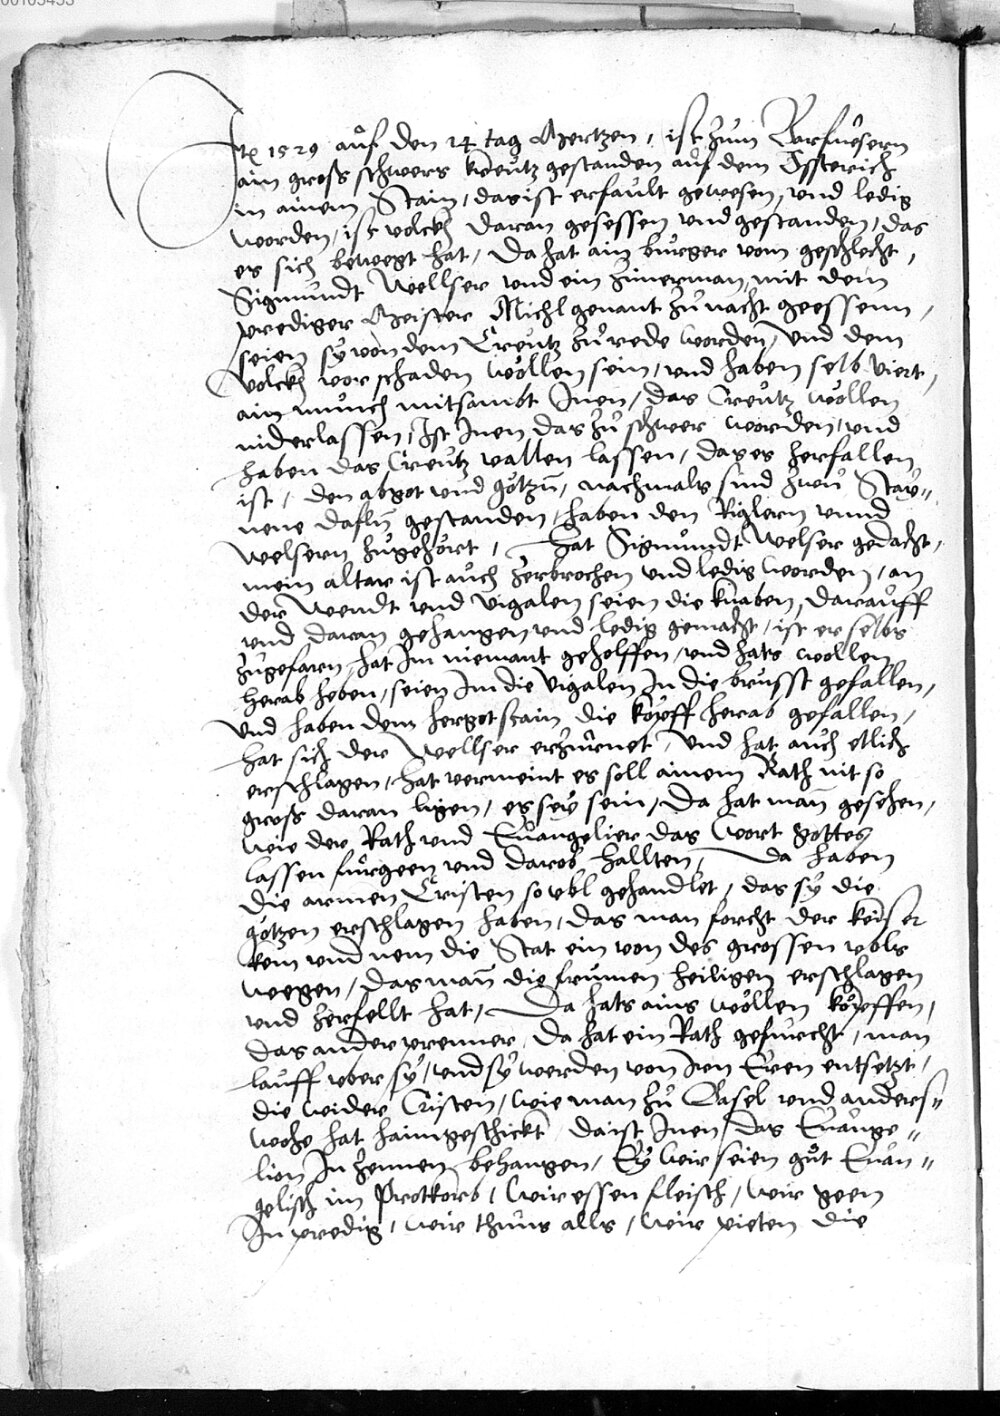 00103433
Jtē 1529 auf den 14 tag Mertzen, ist zum Barfuesern
ain groß schwers kreutz gestanden auf dem Össterich
in ainem Stain, das ist erfault gewesen, und ledig
worden, ist volckh daran gesessen und gestanden, das
es sich bewegt hat, Da hat ain burger vom geschlecht,
Sigmundt Wellser und ein zimerman, mit dem
prediger Meister Michl genant zu nacht geessenn,
seien sy von dem Creutz zu rede worden, und dem
volckh vor schaden wöllen sein, und haben selb viert,
ain munch mitsambt Jnen, das Creutz wöllen
niderlassen, Jst Jnen das zu schwer worden, und
haben das Creutz vallen lassen, das es herfallen
ist, den abgot und götzn, nachmals sind zwen Stay„
nene gestanden, haben den Riglern unnd
Welsern zugehört, Hat Sigmundt Welser gedacht,
mein altar ist auch zerbrochen und ledig worden, an
der Wendt und vigalen seien die knaben, darauff
und daran gehangen und ledig gemacht, ist er selbs
zugefarn, hat im niemant geholffen, und hats wöllen
herab heben, seien Jm die vigalen Jn die brusst gefallen,
und haben dem hergot sain die köpff herab gefallen,
hat sich der Wellser erzurnet, und hat auch etlich
erschlagen, hat vermeint es soll ainem Rath nit so
groß daran ligen, es sey sein, Da hat man gesehen,
wie der Rath und Euangelier das wort gottes
lassen furgeen und darob hallten, Da haben
die armen Cristen so vbl gehandlet, das sy die
götzen erschlagen haben, das man forcht der keiser
kem und nem die Stat ein von des grossen vols
wegen, das man die frumen heiligen erschlagen
und zerfellt hat, Da hats ains wöllen köpffen,
das ander prennen, Da hat ein Rath gefurcht, man
lauff vber sy, und sy werden von iren Eren entsetzt,
die wider Cristen, wie man zu Basel und anders„
wohe hat haimgeschickt, da ist Jnen das Euange„
lion Jn zennen behangen, Ey wir seien gut Euan„
gelisch im Protkorb, wir essen fleisch, wir geen
Jn predig, wir thuns alls, wir pieten die